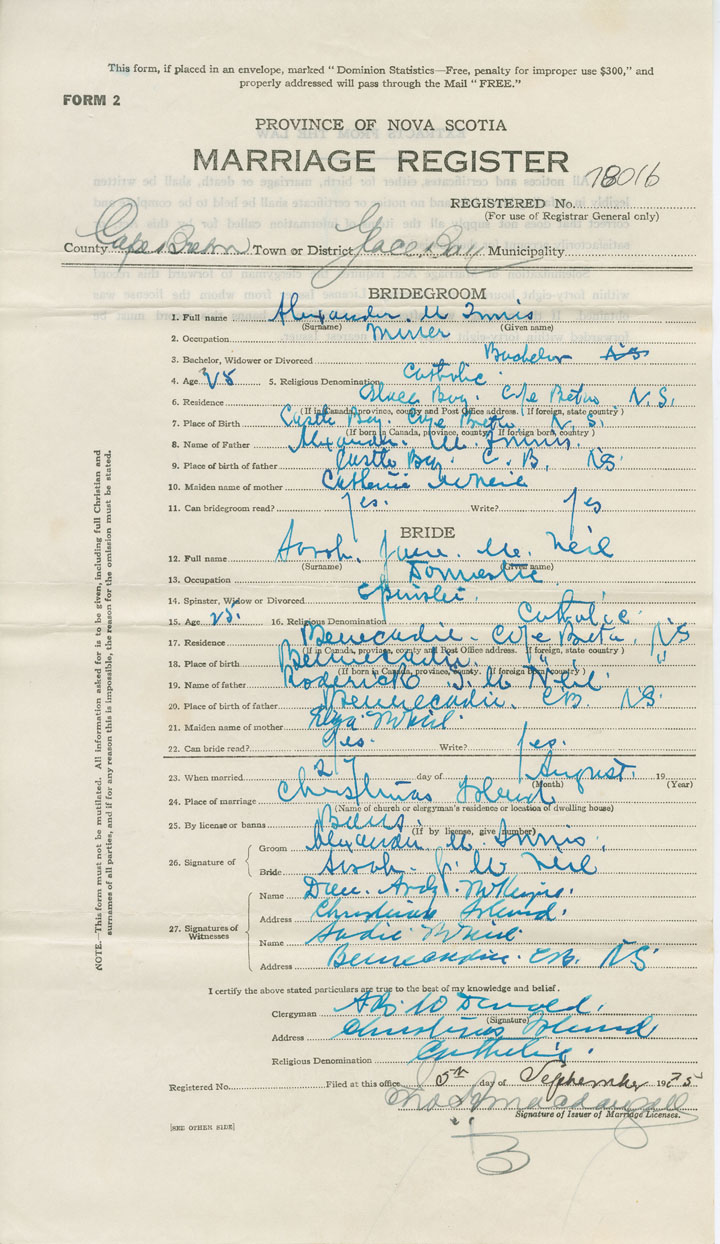 This form, if placed in an envelope, marked "Dominion Statistics—Free, penalty for improper use $300," and
properly addressed will pass through the Mail "FREE."
FORM 2
PROVINCE OF NOVA SCOTIA
MARRIAGE REGISTER
78016
REGISTERED No.
(For use of Registrar General only)
County Cape Breton Town or District Glace Bay Municipality
BRIDEGROOM
1. Full name Alexander. Mc Innis
(Surname) (Given name)
2. Occupation Miner
3. Bachelor, Widower or Divorced Bachelor
4. Age 28 5. Religious Denomination Catholic
6. Residence Glace Bay. Cape Breton N.S.
(If in Canada, province, county and Post Office address. If foreign, state country)
7. Place of Birth Castle Bay. Cape Breton N.S.
(If born in Canada, province, county. If foreign born, country)
8. Name of Father Alexander. Mc. Innis.
9. Place of birth of father Castle Bay. C.B. NS
10. Maiden name of mother Catherine McNeil
11. Can bridegroom read? Yes. Write? Yes
BRIDE
12. Full name Sarah. Jane. Mc. Neil
(Surname) (Given name)
13. Occupation Domestic
14. Spinster, Widow or Divorced Spinster.
15. Age 25. 16. Religious Denomination Catholic.
17. Residence Benecadie. Cape Breton. NS
(If in Canada, province, county and Post Office address. If foreign, state country)
18. Place of birth Bennecadie. " "
(If born in Canada, province, county. If foreign born, country)
19. Name of father Roderick J. Mc Neil.
20. Place of birth of father Bennecadie. CB. NS.
21. Maiden name of mother McNeil.
22. Can bride read? Yes. Write? Yes.
23. When married 27 day of August. 19
(Month) (Year)
24. Place of marriage Christmas Island
(Name of church or clergyman's residence or location of dwelling house)
25. By license or banns Banns
(If by license, give number)
26. Signature of
Groom Alexander Mc. Innis.
Bride Sarah. J. Mc Neil
27. Signatures of Witnesses
Name Dan. McKenzie.
Address Christmas Island.
Name Sadie McNeil
Address Bennecadie. CB. NS.
I certify the above stated particulars are true to the best of my knowledge and belief.
Clergyman McDonald.
(Signature)
Address Christmas Island.
Religious Denomination Catholic.
Registered No. Filed at this office 5th day of September 1925
Macdougall
Signature of Issuer of Marriage Licenses.
[SEE OTHER SIDE]
NOTE.—This form must not be mutilated. All information asked for is to be given, including full Christian and
surnames of all parties, and if for any reason this is impossible, the reason for the omission must be stated.